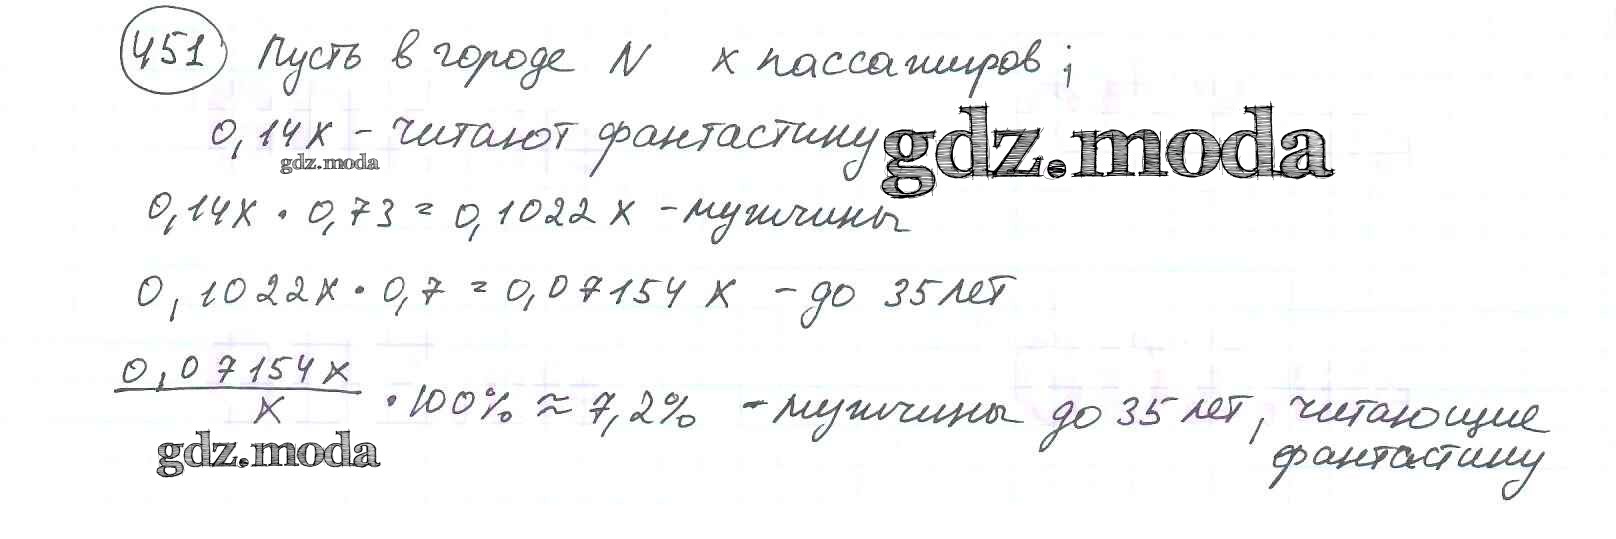 451 Пусть в городе N x пассажиров;
0,14x - читают фантастику
gdz.moda
gdz.moda
0,14x · 0,73 = 0,1022x - мужчины
0,1022x · 0,7 = 0,07154x - до 35 лет
0,07154x
x
· 100% ≈ 7,2% - мужчины до 35 лет, читающие
фантастику
gdz.moda